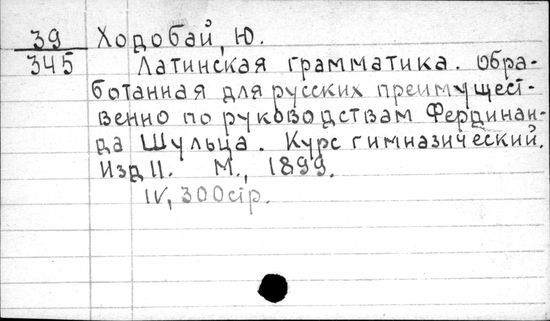 39 Ходобай, Ю.
345 Латинская грамматика. Обра-
ботанная для русских преимущест-
венно по руководствам Фердинан-
да Шульца. Курс гимназический.
Изд 11. М., 1899.
IV, 300стр.